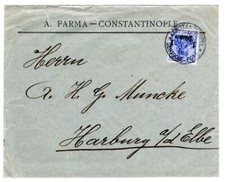 A. PARMA — CONSTANTINOPLE.
Herrn
A. H. G. Muncke
Harburg a/d Elbe